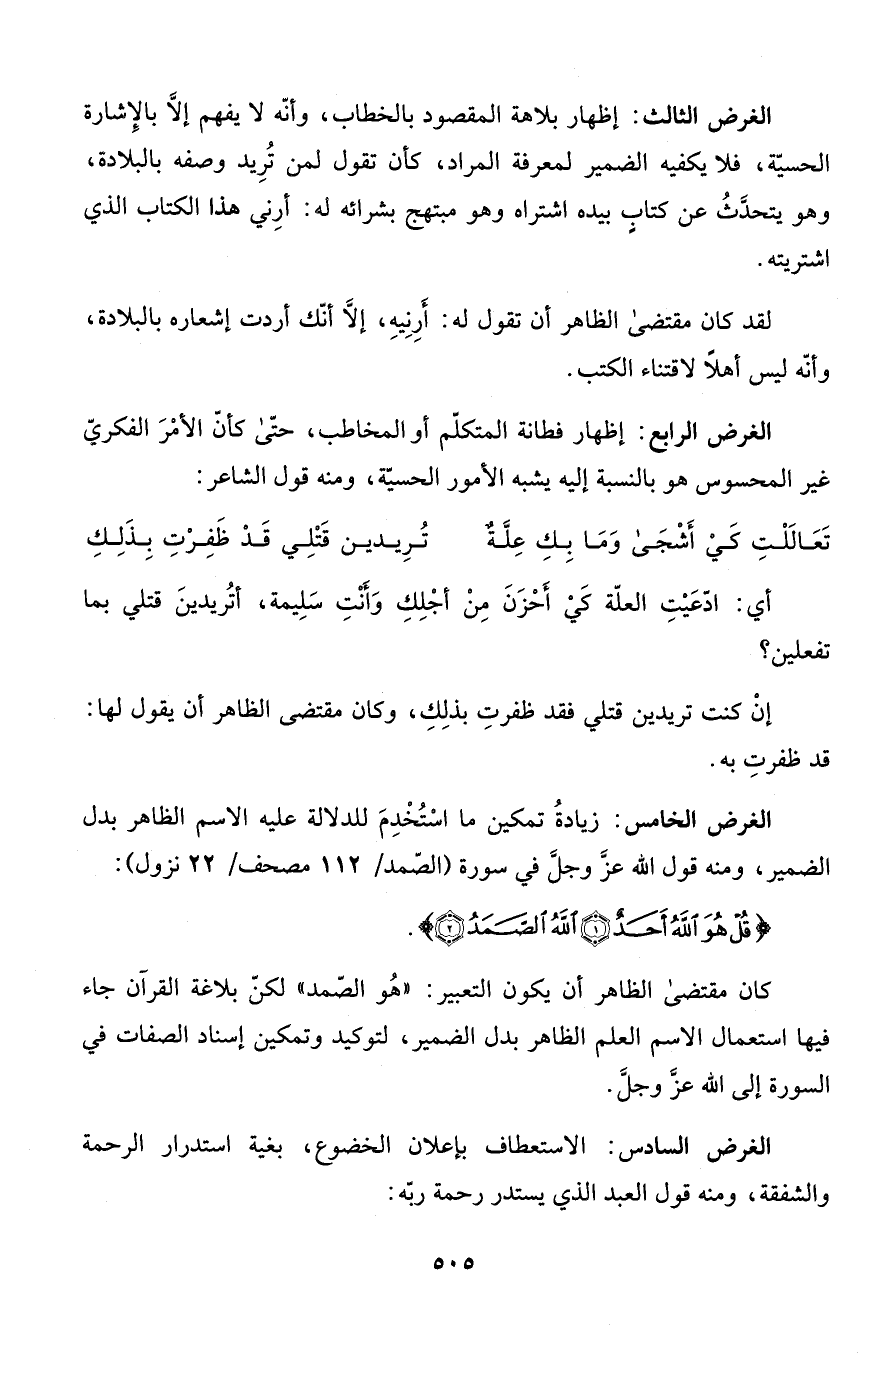 الغرض الثالث: إظهار بلاهة المقصود بالخطاب، وأنّه لا يفهم إلاَّ بالإِشارة
الحسيّة، فلا يكفيه الضمير لمعرفة المراد، كأن تقول لمن تُريد وصفه بالبلادة،
وهو يتحدَّثُ عن كتابٍ بيده اشتراه وهو مبتهج بشرائه له: أرِني هذا الكتاب الذي
اشتريته.
لقد كان مقتضىٰ الظاهر أن تقول له: أَرِنِيهِ، إلاَّ أنّك أردت إشعاره بالبلادة،
وأنّه ليس أهلاً لاقتناء الكتب.
الغرض الرابع: إظهار فطانة المتكلّم أو المخاطب، حتّىٰ كأنّ الأمْرَ الفكريّ
غير المحسوس هو بالنسبة إليه يشبه الأمور الحسيّة، ومنه قول الشاعر:
تَعَالَلْتِ كَيْ أَشْجَىٰ وَمَا بِكِ عِلَّةٌ تُرِيدين قَتْلِي قَدْ ظَفِرْتِ بِذَلِكِ
أي: ادّعَيْتِ العلّة كَيْ أَحْزَنَ مِنْ أجْلِكِ وَأَنْتِ سَلِيمة، أتُريدينَ قتلي بما
تفعلين؟
إنْ كنت تريدين قتلي فقد ظفرتِ بذلِكِ، وكان مقتضى الظاهر أن يقول لها:
قد ظفرتِ به.
الغرض الخامس: زيادةُ تمكين ما اسْتُخْدِمَ للدلالة عليه الاسم الظاهر بدل
الضمير، ومنه قول الله عزَّ وجلَّ في سورة (الصّمد/ ١١٢ مصحف/ ٢٢ نزول):
﴿قُلْ هُوَ ٱللَّهُ أَحَدٌ ١ ٱللَّهُ ٱلصَّمَدُ ٢﴾.
كان مقتضىٰ الظاهر أن يكون التعبير: «هُو الصّمد» لكنّ بلاغة القرآن جاء
فيها استعمال الاسم العلم الظاهر بدل الضمير، لتوكيد وتمكين إسناد الصفات في
السورة إلى الله عزَّ وجلَّ.
الغرض السادس: الاستعطاف بإعلان الخضوع، بغية استدرار الرحمة
والشفقة، ومنه قول العبد الذي يستدر رحمة ربّه:
٥٠٥